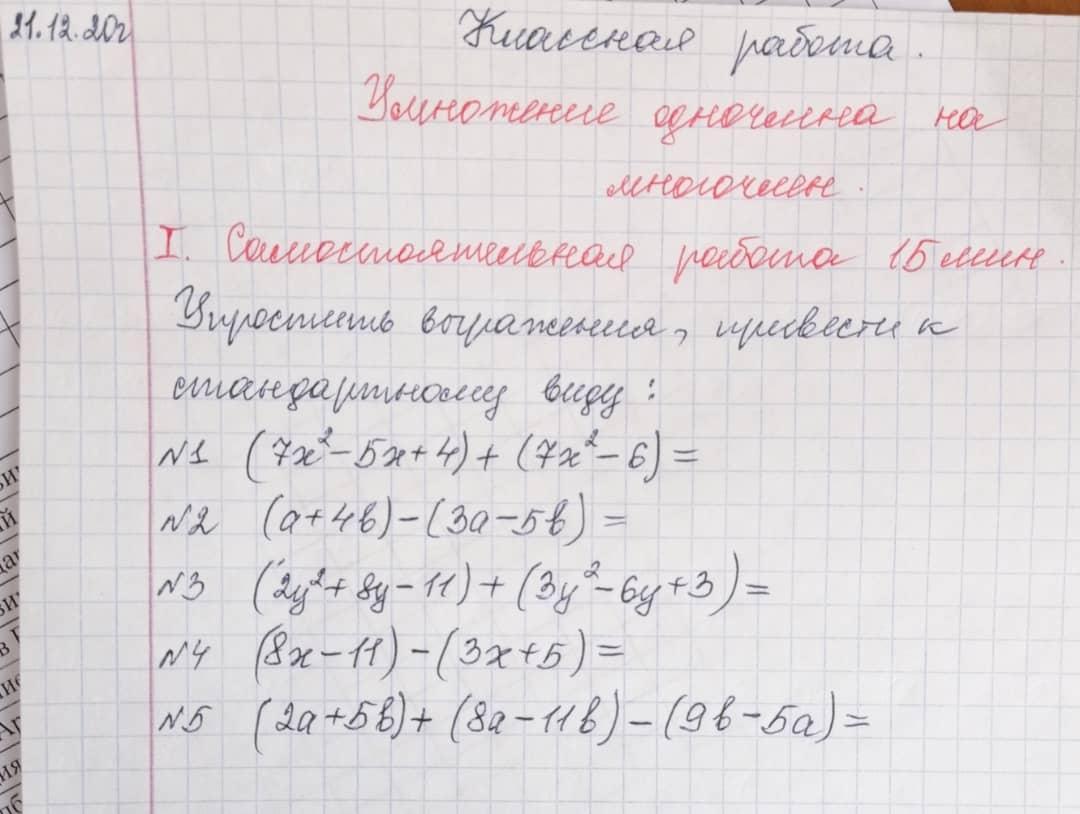 21.12.20г
Классная работа.
Умножение одночлена на
многочлен.
I. Самостоятельная работа 15 мин.
Упростить выражения, привести к
стандартному виду:
№1 (7x²-5x+4)+(7x²-6)=
№2 (a+4b)-(3a-5b)=
№3 (2y²+8y-11)+(3y²-6y+3)=
№4 (8x-11)-(3x+5)=
№5 (2a+5b)+(8a-11b)-(9b-5a)=